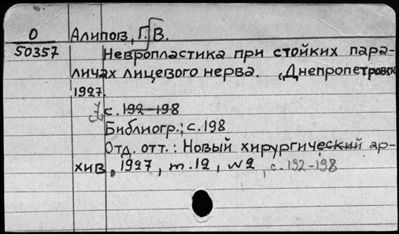 О Алипов, Г. В.
50357 Невропластика при стойких пара-
личах лицевого нерва. Днепропетровск
1927
с. 192-198
Библиогр.: с. 198
Отд. отт.: Новый хирургический ар-
хив, 1927, т. 12, № 2, с. 192-198